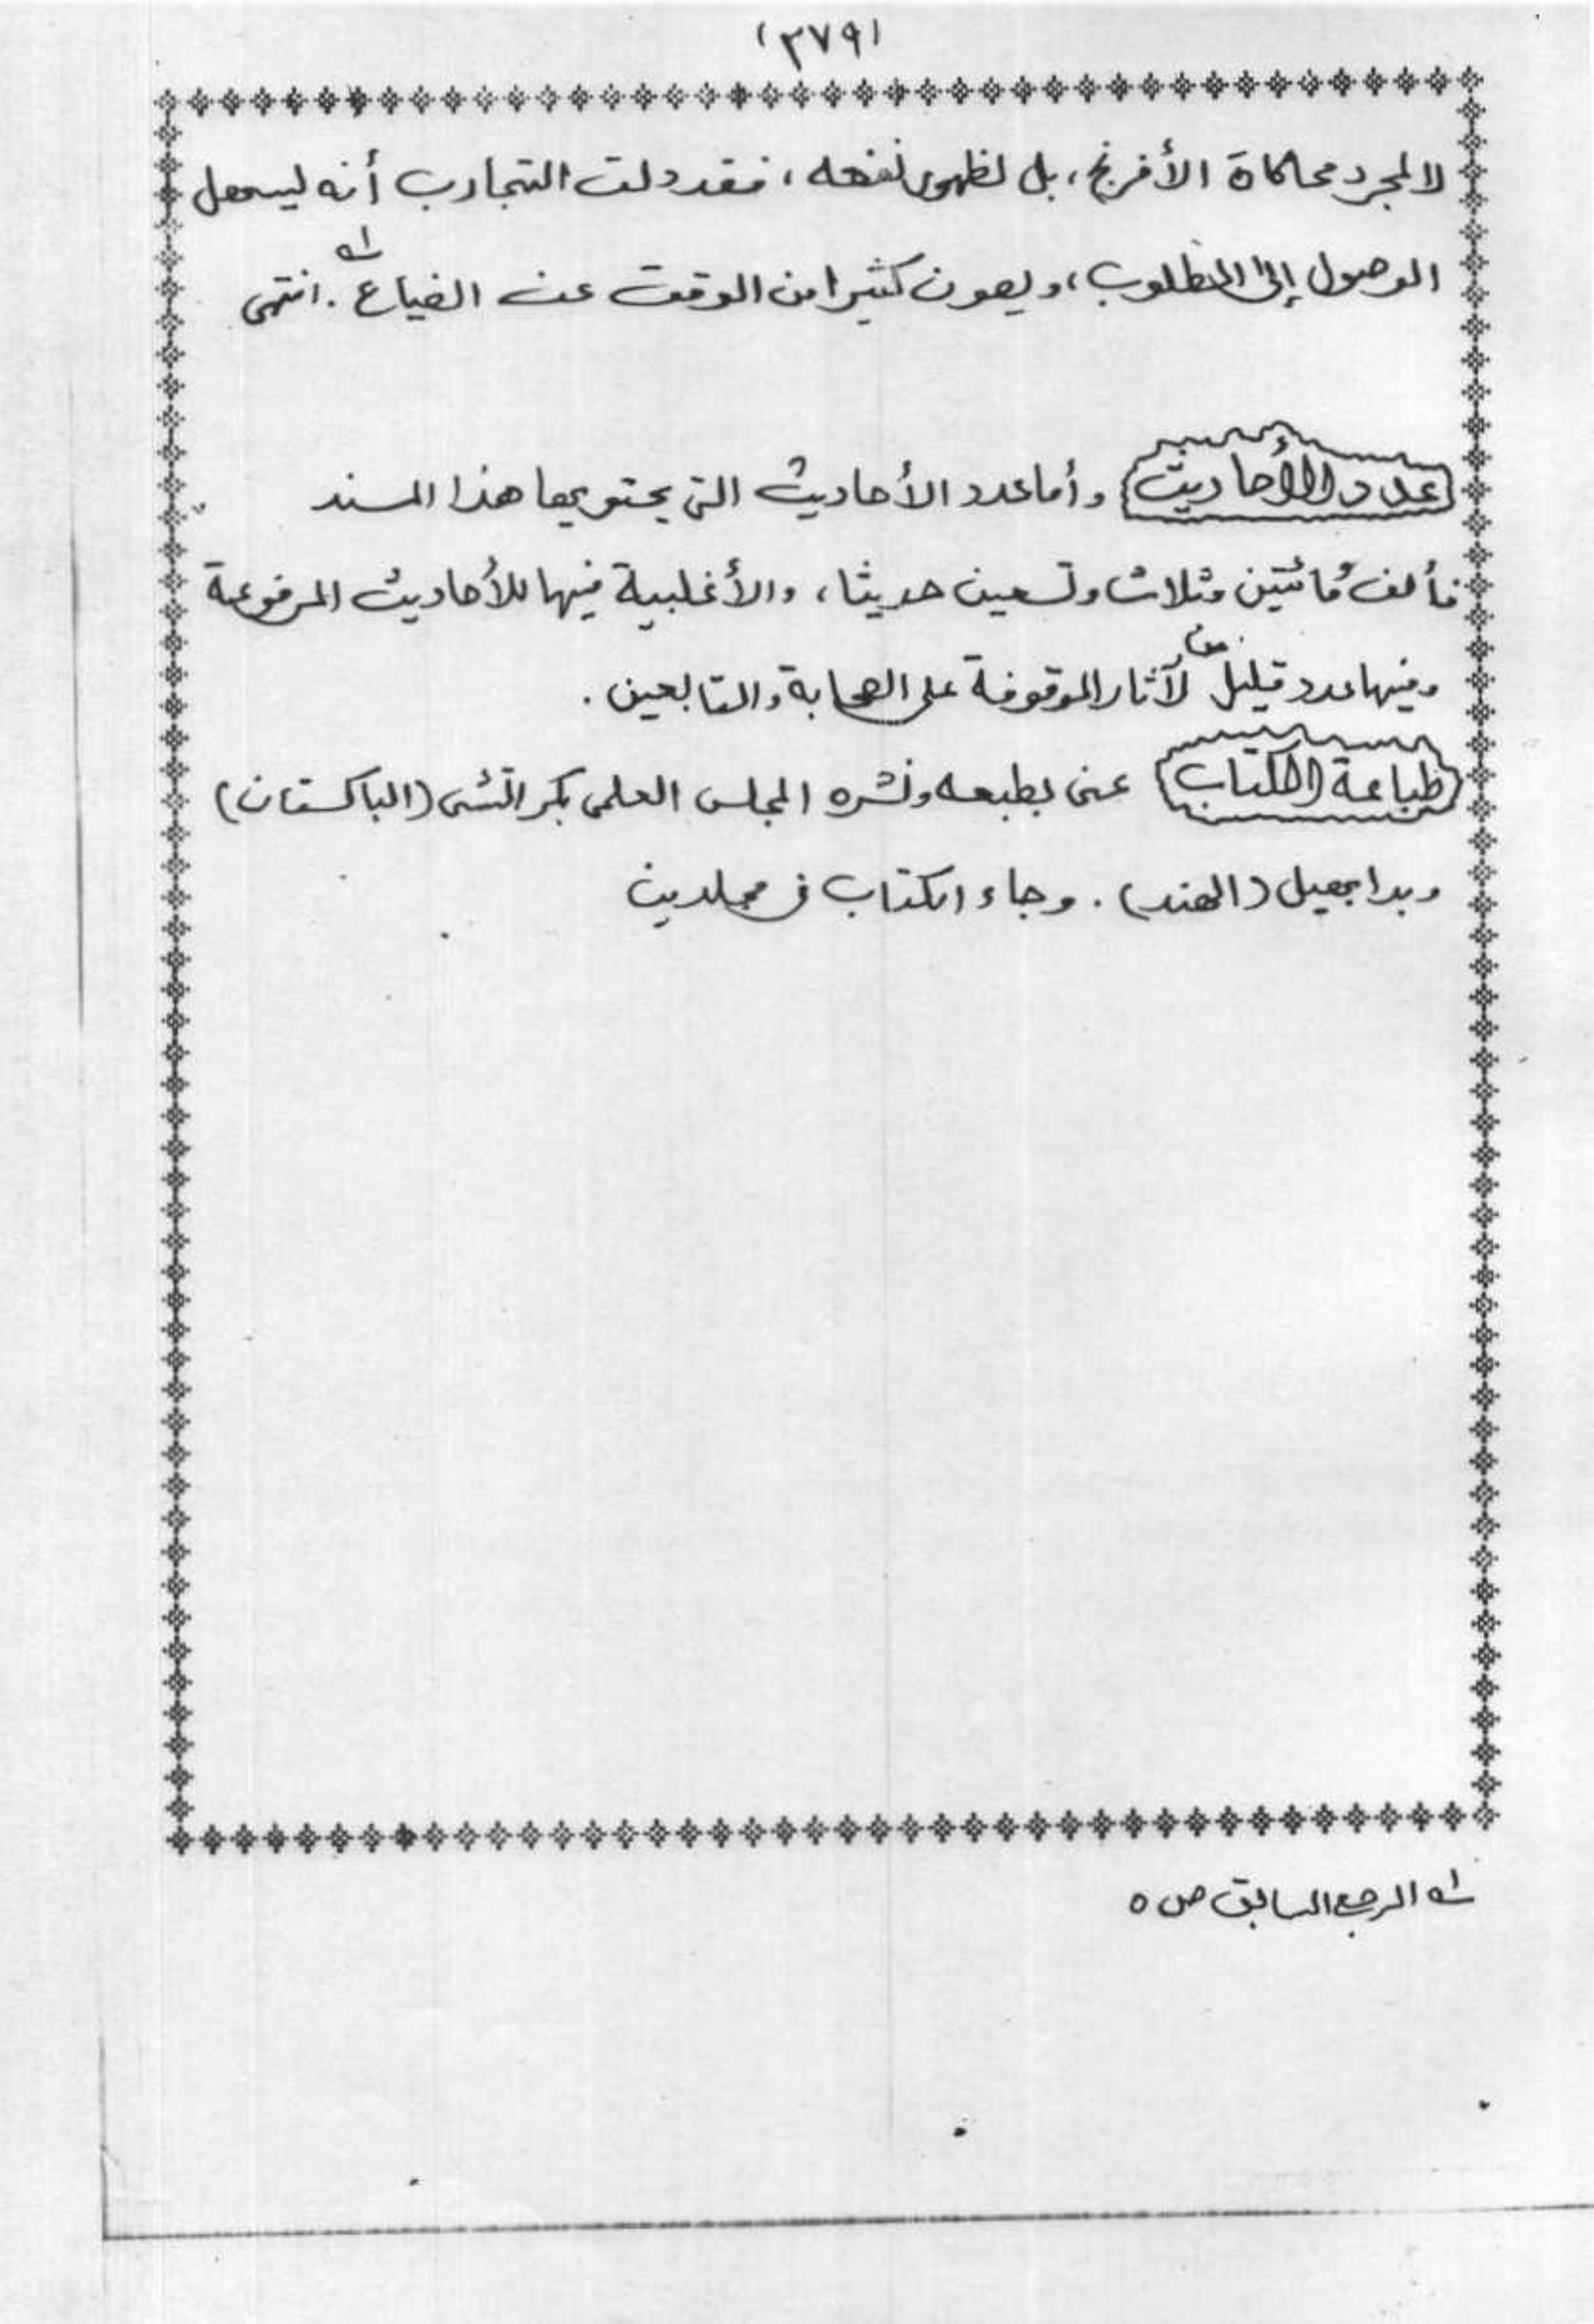 (٣٧٩)
لا لمجرد محاكاة الأفرنج، بل لظهور نفعه، فقد دلت التجارب أنه ليسهل
الوصول إلى المطلوب، ويصون كثيرا من الوقت عن الضياع. انتهى ١ـه
عدد الأحاديث وأما عدد الأحاديث التى يحتويها هذا المسند
فألف ومائتين وثلاث وتسعين حديثا، والأغلبية فيها للأحاديث المرفوعة
وفيها عدد قليل من لآثار الموقوفة على الصحابة والتابعين.
طباعة الكتاب عنى بطبعه ونشره المجلس العلمى بكراتشى (الباكستان)
وبدابهيل (الهند). وجاء الكتاب فى مجلدين
١ـه المرجع السابق ص ٥